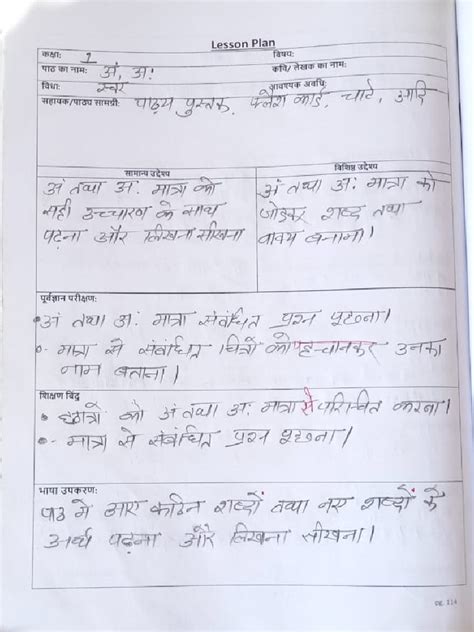 Lesson Plan
कक्षा: 1 विषय:
पाठ का नाम: अं, अः कवि/ लेखक का नाम:
विधा: स्वर आवश्यक अवधि:
सहायक/पाठ्य सामग्री: पाठ्य पुस्तक, फ्लैश कार्ड, चार्ट, आदि
सामान्य उद्देश्य विशिष्ट उद्देश्य
अं तथा अः मात्रा को
सही उच्चारण के साथ
पढ़ना और लिखना सीखना
अं तथा अः मात्रा को
जोड़कर शब्द तथा
वाक्य बनाना।
पूर्वज्ञान परीक्षण:
• अं तथा अः मात्रा संबंधित प्रश्न पूछना।
• - मात्रा से संबंधित चित्रों को पहचानकर उनका
नाम बताना।
शिक्षण बिंदु
• छात्रों को अं तथा अः मात्रा से परिचित करना।
• - मात्रा से संबंधित प्रश्न पूछना।
भाषा उपकरण:
पाठ मे आए कठिन शब्दों तथा नए शब्दों के
अर्थ पढ़ना और लिखना सीखना।